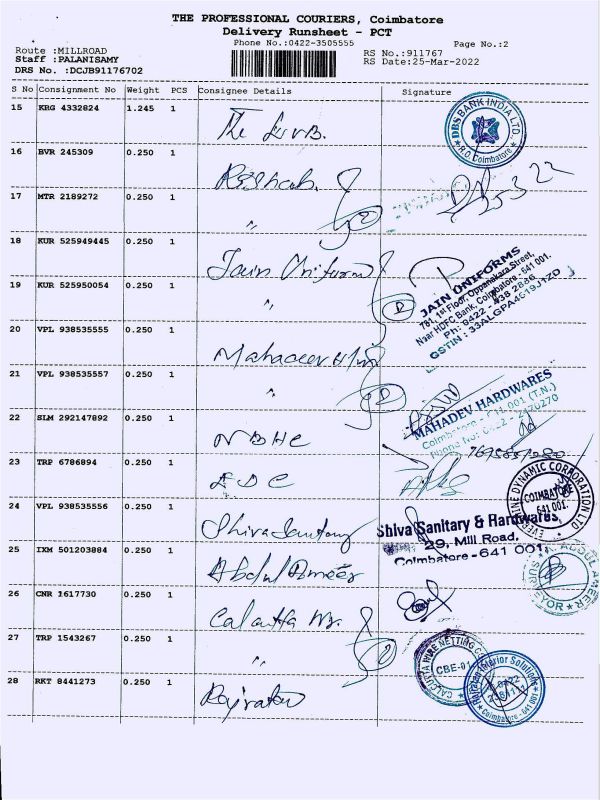 THE PROFESSIONAL COURIERS, Coimbatore
Delivery Runsheet - PCT
Phone No.:0422-3505555
Page No.:2
Route :MILLROAD
RS No.:911767
Staff :PALANISAMY
RS Date:25-Mar-2022
DRS No. :DCJB91176702
S No Consignment No Weight PCS Consignee Details Signature
15 KRG 4332824 1.245 1
The
DBS BANK INDIA LTD.
R.O. Coimbatore
16 BVR 245309 0.250 1
Rishab
17 MTR 2189272 0.250 1
"
2
18 KUR 525949445 0.250 1
Jain Uniform
JAIN UNIFORMS
781, 1st Floor, Oppanakara Street,
Near HDFC Bank, Coimbatore - 641 001.
Ph: 0422 - 438 2886
GSTIN : 33ALGPA4619J1ZO
19 KUR 525950054 0.250 1
"
2
20 VPL 938535555 0.250 1
Mahadeev
21 VPL 938535557 0.250 1
"
2
MAHADEV HARDWARES
Coimbatore - 641 001 (T.N.)
Phone No: 0422 -
22 SLM 292147892 0.250 1
NBHC
23 TRP 6786894 0.250 1
EDC
EVERSHINE DYNAMIC CORPORATION LTD
COIMBATORE
641 001.
24 VPL 938535556 0.250 1
Shiva Sanitary
Shiva Sanitary & Hardwares
29, Mill Road,
Coimbatore - 641 001
25 IXM 501203884 0.250 1
Abdul Ameer
ABDUL AMEER
SURVEYOR
26 CNR 1617730 0.250 1
Calcutta
27 TRP 1543267 0.250 1
"
2
CALCUTTA WIRE NETTING CO
CBE-01
28 RKT 8441273 0.250 1
Rajratan
Interior Solutions
Coimbatore - 641 001